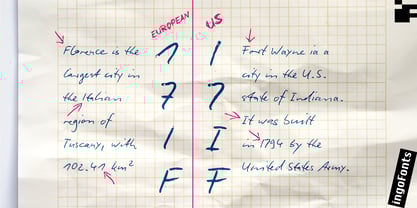 EUROPEAN
US
Florence is the
largest city in
the Italian
region of
Tuscany, with
102.41 km²
1
7
I
F
1
7
I
F
Fort Wayne is a
city in the U.S.
state of Indiana.
It was built
in 1794 by the
United States Army.
ingoFonts